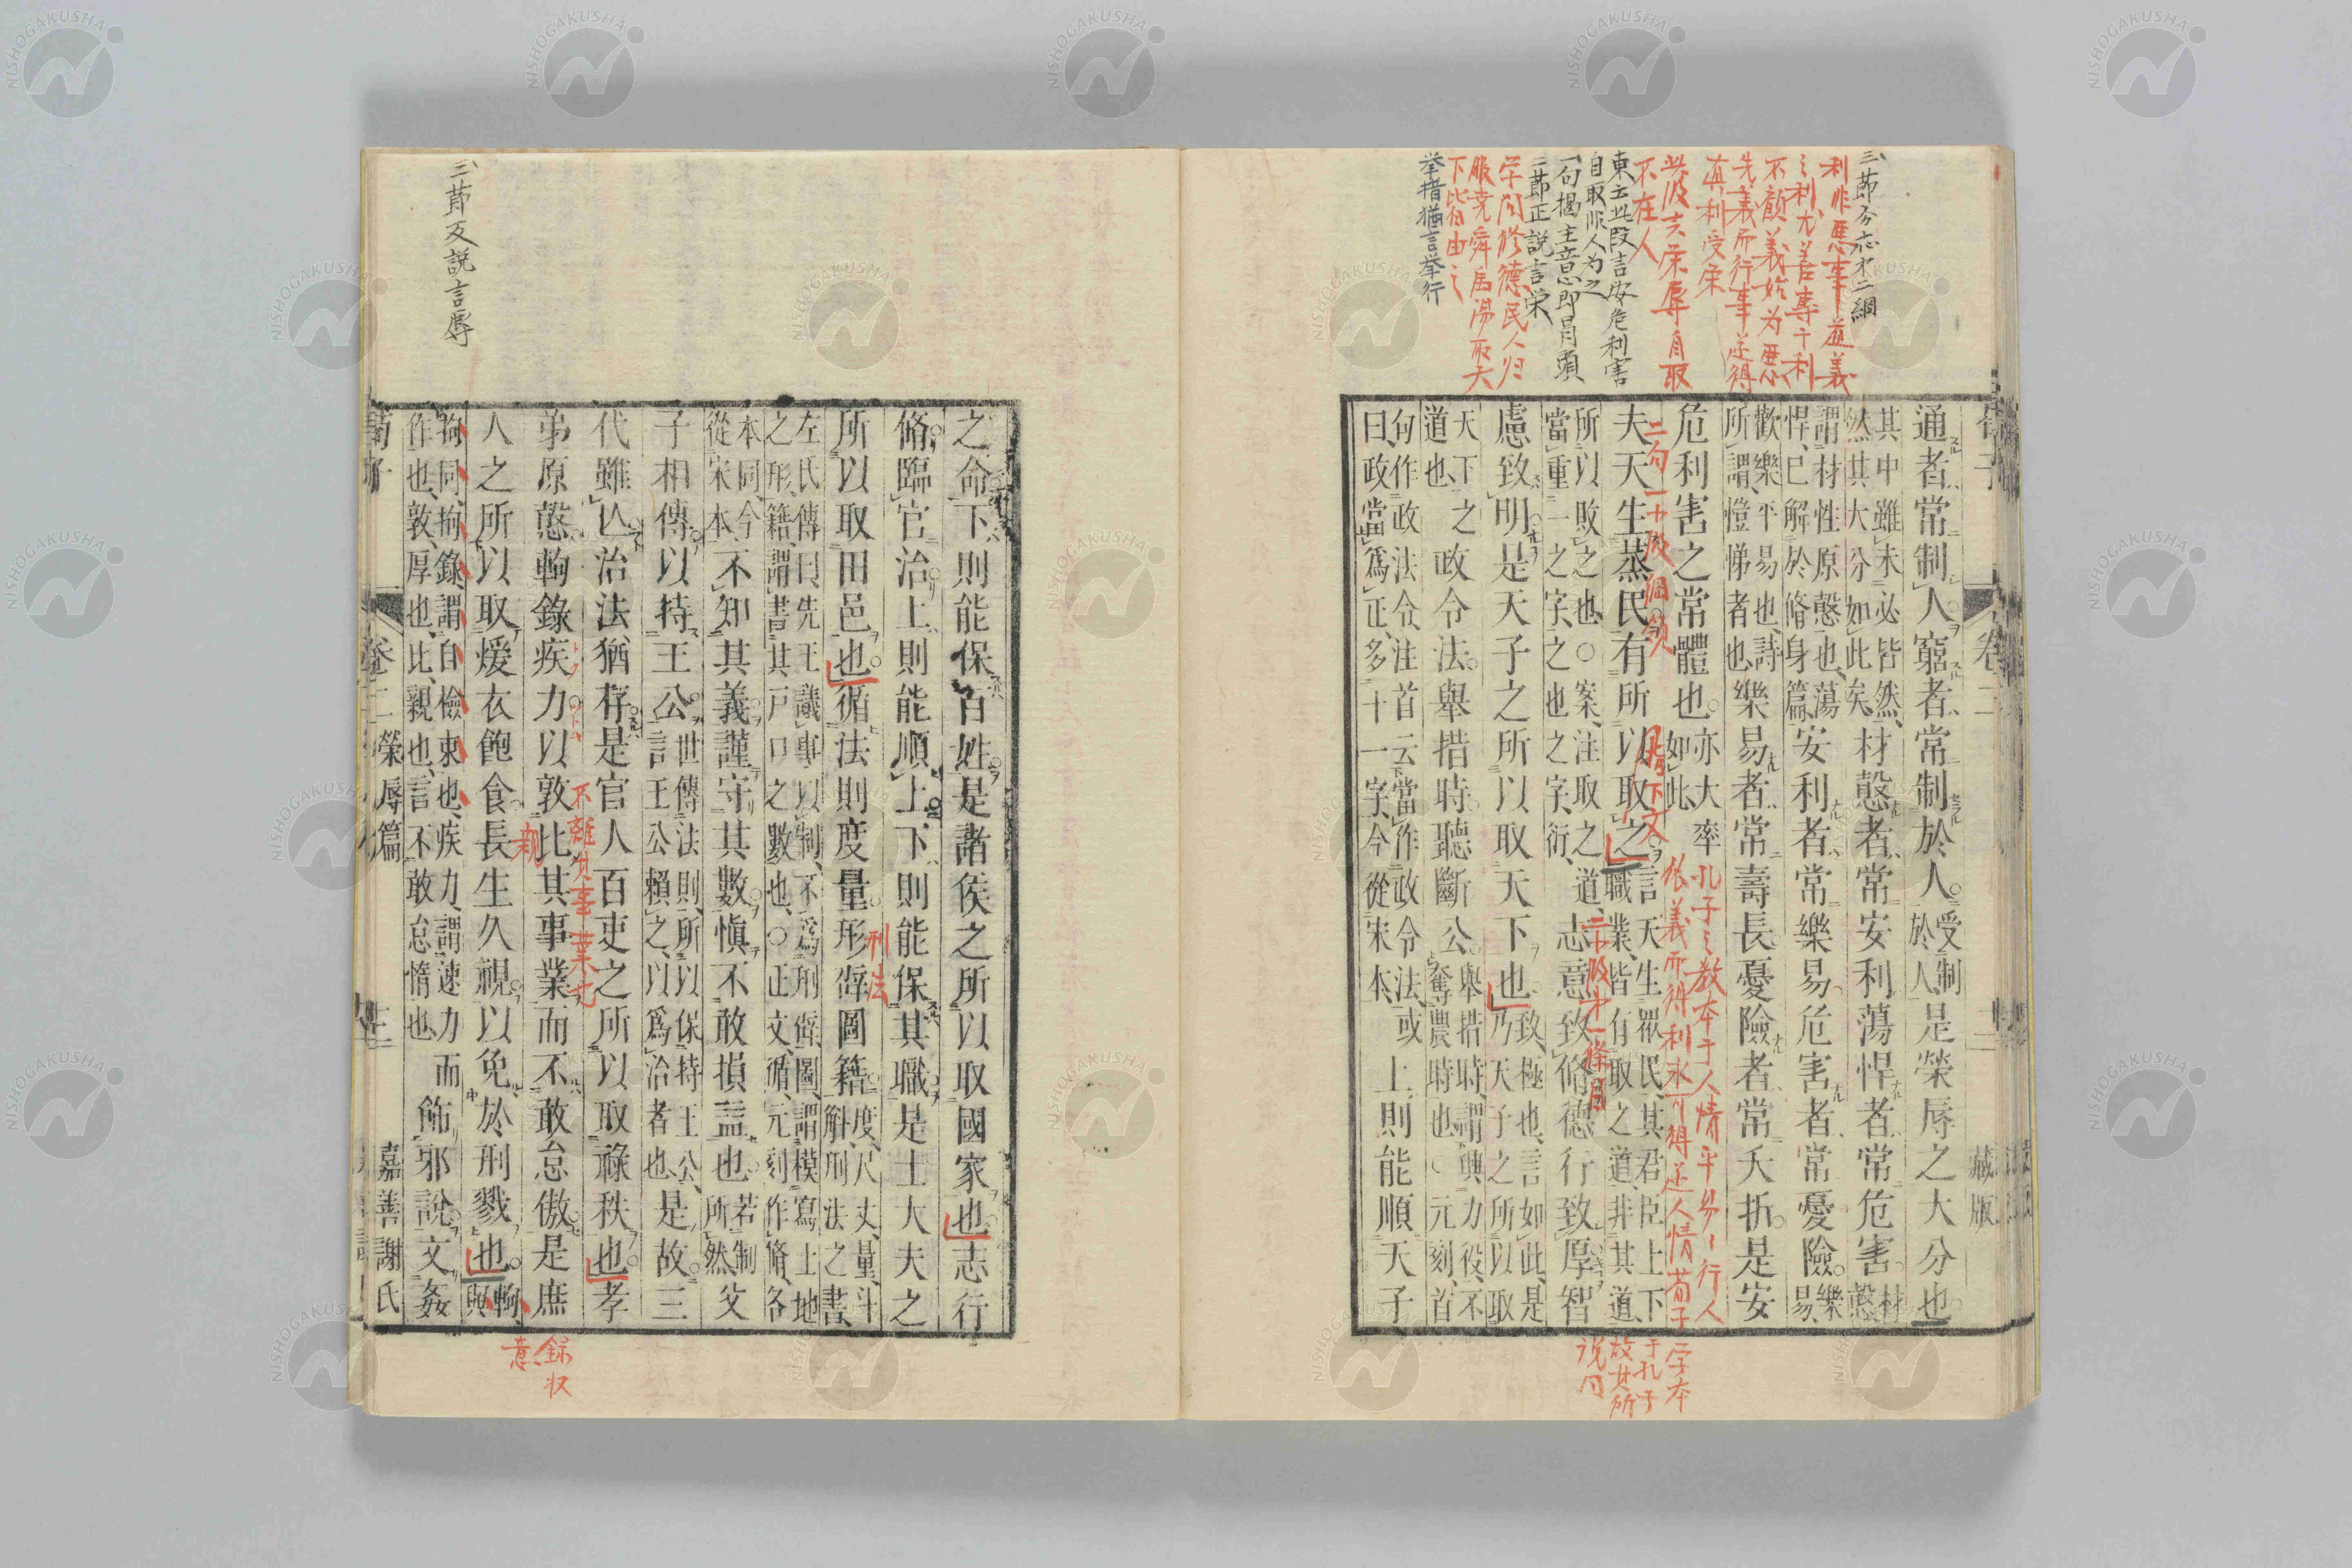 三節分应才二綱
利非悪事並義
之利尤善專于利
不顧義始为悪
先義而行事並得
並利受栄
此段夫栄辱自取
不在人
東云此段言安危利害
自取非人为之
一句揭主意即冒頭
二節正說言栄
学问於德民人归
服尭舜禹湯取天
下皆由之
挙措猶言挙行
荀子
卷二
十二
藏版
通者常制人窮者常制於人受制
於人是榮辱之大分也
其中雖未必皆然
然其大分如此矣材慤者常安利蕩悍者常危害材慤
謂材性原慤也蕩
悍已解於脩身篇安利者常樂易危害者常憂險樂易
歡樂平易也詩
所謂愷悌者也樂易者常壽長憂險者常夭折是安
危利害之常體也亦大率
如此
二句一中段綱領
孔子之教本于人情平易行人
夫天生蒸民有所以取之言天生眾民其君臣上下
職業皆有取之道非其道
所以敗之也○案注取之道
當重一之字之也之字衍志意致脩德行致厚智
慮致明是天子之所以取天下也致極也言如此是
乃天子之所以取
天下之
道也政令法舉措時聽斷公舉措時謂興力役不
奪農時也○元刻首
句作政法令注首云當作政令法或
曰政當爲正多十一字今從宋本上則能順天子
二中段才一條目
学本
于孔子
故其所
说同
三節反説言辱
之命下則能保百姓是諸侯之所以取國家也志行
脩臨官治上則能順上下則能保其職是士大夫之
所以取田邑也循法則度量形辟圖籍度尺丈量斗
斛刑法之書
刑法
左氏傳曰先王議事以制不爲刑辟圖謂模寫土地
之形籍謂書其戸口之數也○正文循元刻作脩各
本同今
從宋本不知其義謹守其數慎不敢損益也若制
所然父
子相傳以持王公世傳法則所以保持王公
言王公賴之以爲治者也是故三
代雖亾治法猶存是官人百吏之所以取祿秩也孝
弟原慤軥錄疾力以敦比其事業而不敢怠傲是庶
不離其事業也
親
人之所以取煖衣飽食長生久視以免於刑戮也軥與
拘同拘錄謂自檢束也疾力謂速力而
作也敦厚也比親也言不敢怠惰也飾邪說文姦
錄収
意
荀子
卷二榮辱篇
十二
嘉善謝氏